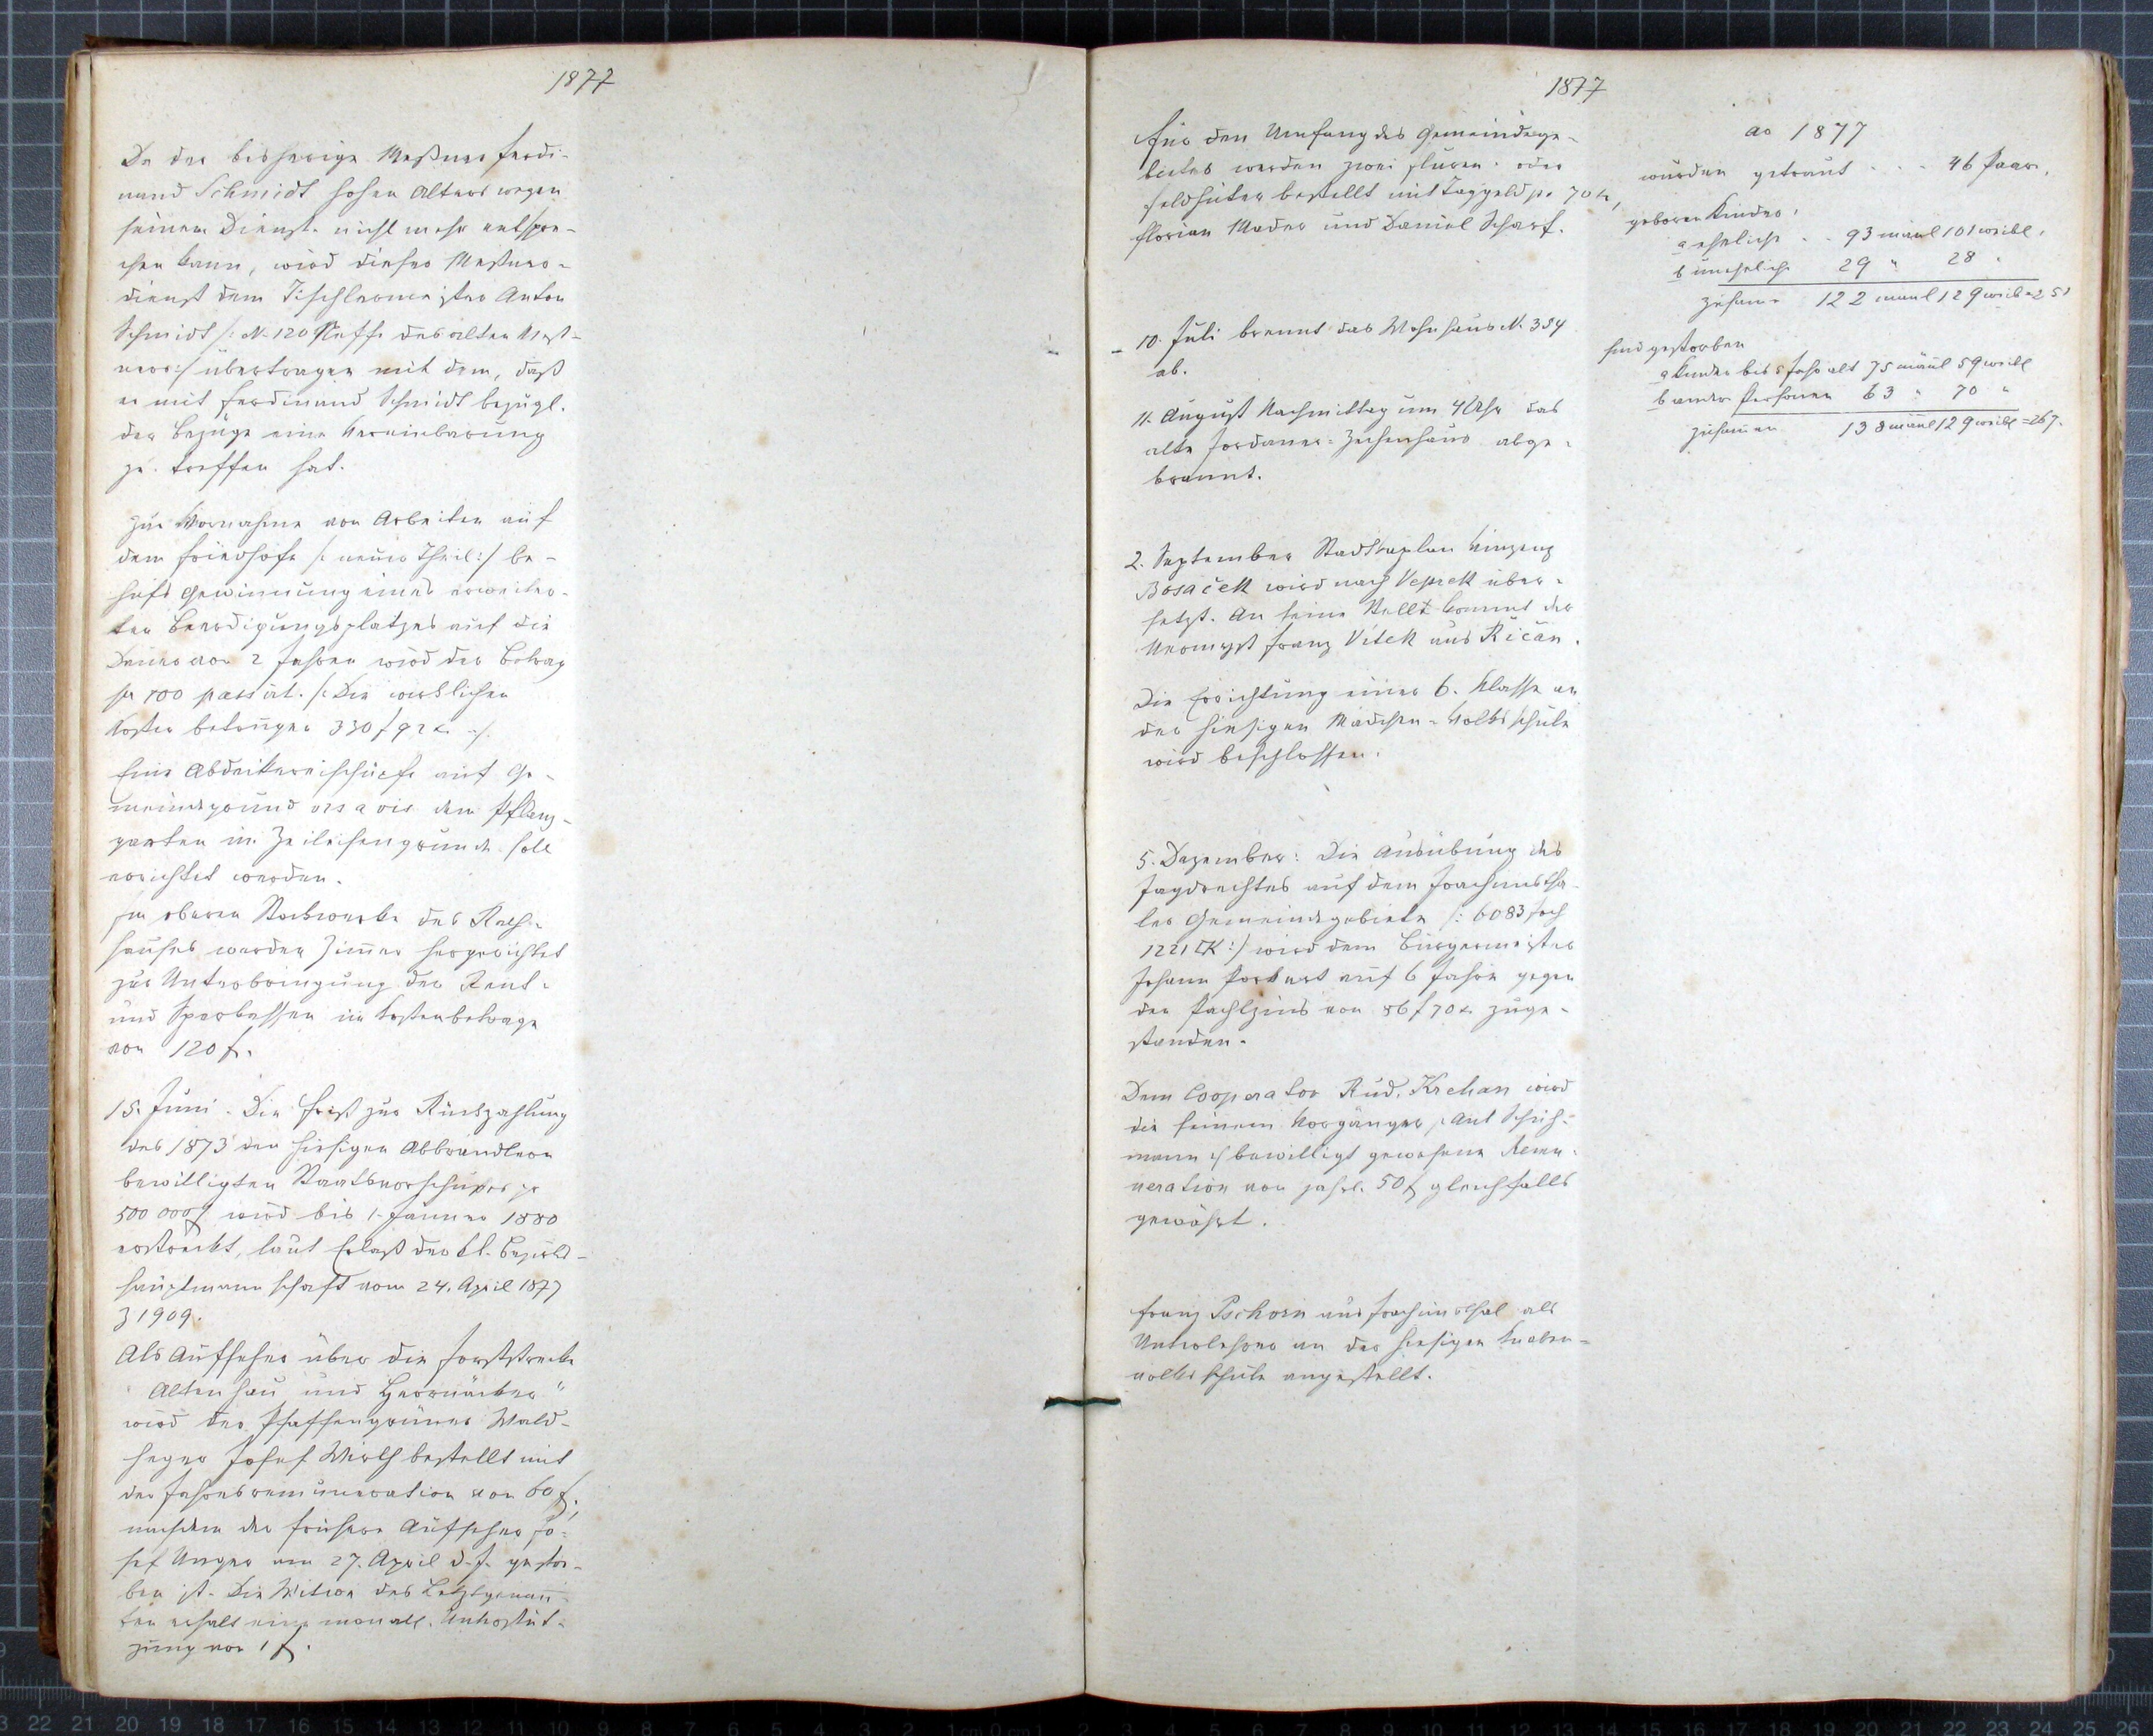 1877
Da der bisherige Meßner Ferdi-
nand Schmidt hohen Alters wegen
seinem Dienste nicht mehr entspre-
chen kann, wird dieser Meßner-
dienst dem Tischlermeister Anton
Schmidt /: N. 120 Neffe des alten Meß-
ners :/ übertragen mit dem, daß
er mit Ferdinand Schmidt bezügl.
der Bezüge eine Vereinbarung
zu treffen hat.
Zur Vornahme von Arbeiten auf
dem Friedhofe /: neuer Theil :/ be-
hufs Gewinnung eines erweiter-
ten Beerdigungsplatzes auf die
Dauer von 2 Jahren wird der Betrag
pr 100 passirt. /: Die wirklichen
Kosten betrugen 330 f 92 x :/.
Eine Abdeckereischupfe auf Ge-
meindegrund vis a vis dem Pflanz-
garten im Zeileisengrunde soll
errichtet werden.
Im oberen Stockwerke des Rath-
hauses werden Zimmer hergerichtet
zur Unterbringung der Rent-
und Sparkassen im Kostenbetrage
von 120 f.
15. Juni. Die Frist zur Rückzahlung
des 1873 den hiesigen Abbrändlern
bewilligten Staatsvorschußes pr
500 000 f wird bis 1. Jänner 1880
erstreckt, laut Erlaß der kk. Bezirks-
hauptmannschaft vom 24. April 1877
Z 1909.
Als Aufseher über die Forststrecke
"Altenhau und Herrnäcker"
wird der Pfaffengrüner Wald-
heger Josef Wirth bestellt mit
der Jahresremuneration von 60 f,
nachdem der frühere Aufseher Jo-
sef Unger am 27. April d. J. gestor-
ben ist. Die Witwe des Letztgenann-
ten erhält eine monatl. Unterstüt-
zung von 1 f.
1877
Für den Umfang des Gemeindege-
bietes werden zwei Fluren- oder
Feldhüter bestellt mit Taggeld pr 70 x,
Florian Mader und Daniel Scharf.
10. Juli brennt das Wohnhaus N. 354
ab.
11. August Nachmittag um 4 Uhr das
alte Jordaner-Zechenhaus abge-
brannt.
2. September Stadtkaplan Vinzenz
Bosaček wird nach Veprek über-
setzt. An seine Stelle kommt der
Neomyst Franz Vitek aus Řičan.
Die Errichtung einer 6. Klasse an
der hiesigen Mädchen-Volksschule
wird beschlossen.
5. Dezember: Die Ausübung des
Jagdrechtes auf dem Joachimstha-
ler Gemeindegebiete /: 6083 Joch
1221 □K :/ wird dem Bürgermeister
Johann Porkert auf 6 Jahre gegen
den Pachtzins von 86 f 70 x zuge-
standen.
Dem Cooperator Rud. Krehan wird
die seinem Vorgänger /: Ant Schuh-
mann :/ bewilligt gewesene Remu-
neration von jährl. 50 f gleichfalls
gewährt.
Franz Pschorn aus Joachimsthal als
Unterlehrer an der hiesigen Knaben-
volksschule angestellt.
ao 1877
wurden getraut . . . 46 Paar.
geboren Kinder,
a eheliche . . 93 mänl 101 weibl.
b uneheliche 29 " 28 "
zusam 122 mänl 129 weib = 251
sind gestorben
a Kinder bis 5 Jahr alt 75 mänl 59 weibl
b andere Personen 63 " 70 "
zusammen 138 mänl 129 weibl = 267.